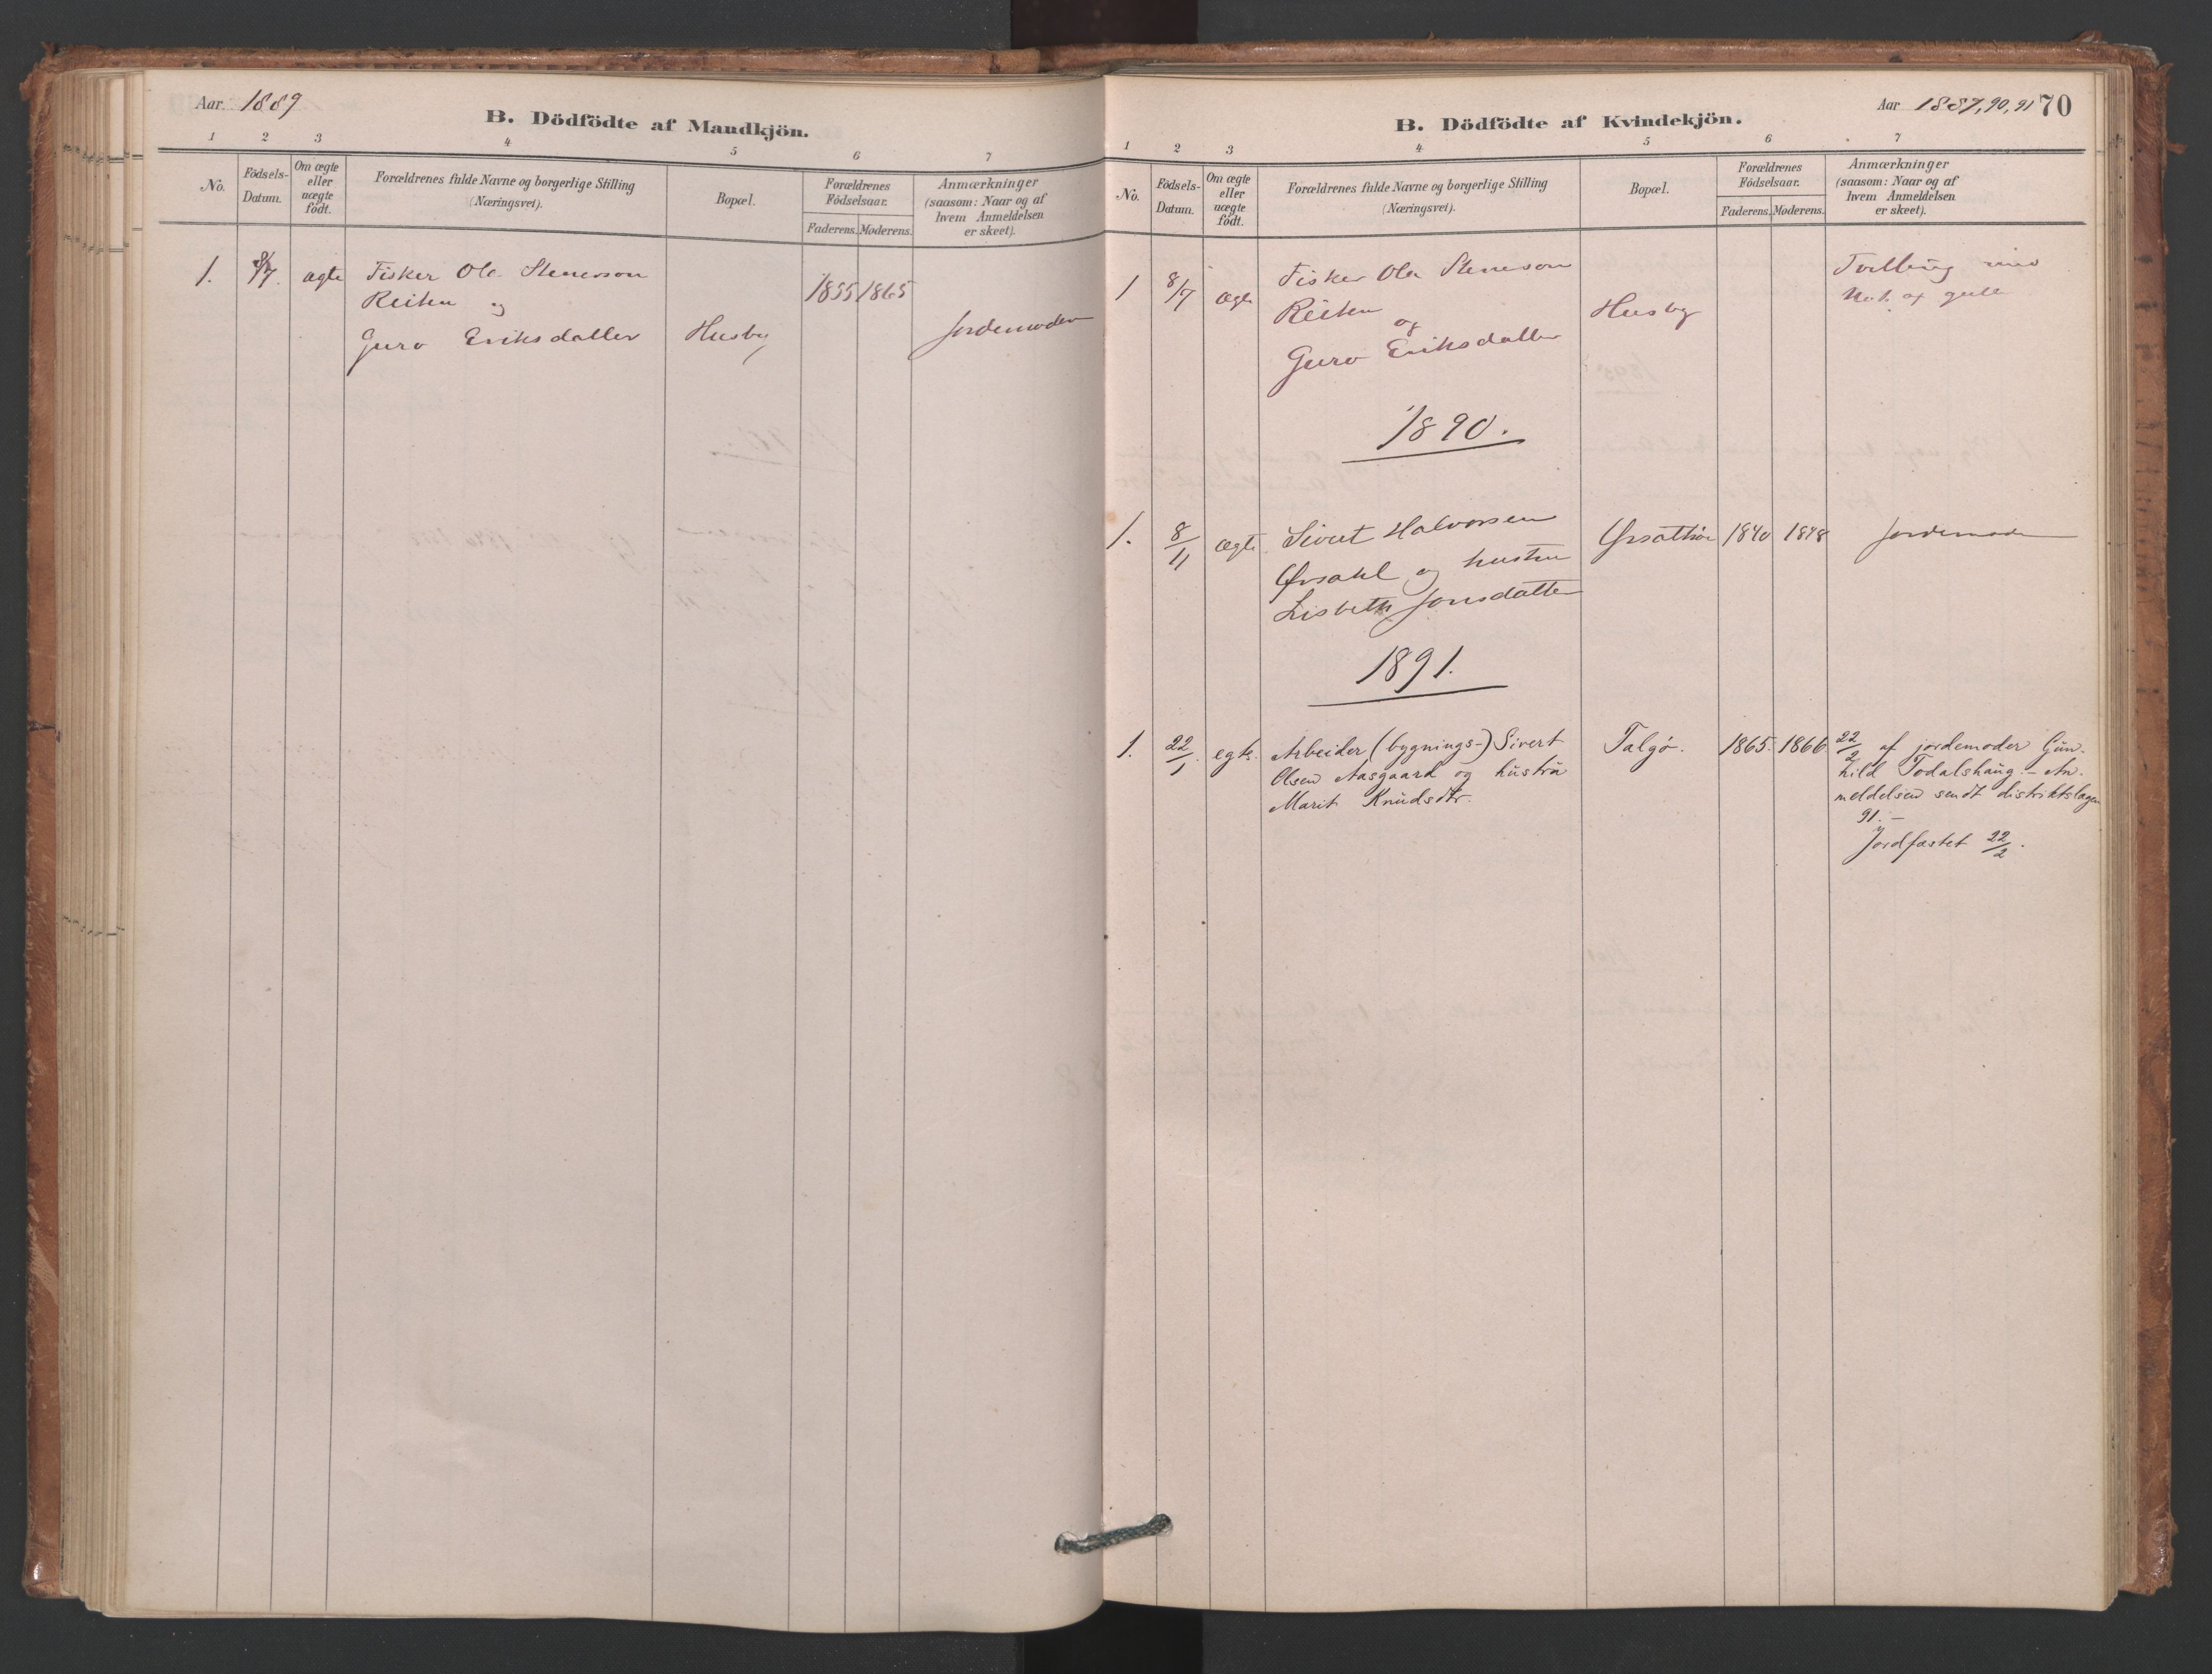 Aar 1889
B. Dödfödte af Mandkjön.
1 2 3 4 5 6 7
No. Födsels-Datum. Om ægte eller uægte födt. Forældrenes fulde Navne og borgerlige Stilling (Næringsvei). Bopæl. Forældrenes Födselsaar. Faderens. Moderens. Anmærkninger (saasom: Naar og af hvem Anmeldelsen er skeet).
1. 8/7. ægte Fisker Ole Stenerson
Reiten og 1855 1865
Guro Eriksdatter Husby Jordemoder
Aar 1889, 90, 91 70
B. Dödfödte af Kvindekjön.
1 2 3 4 5 6 7
No. Födsels-Datum. Om ægte eller uægte födt. Forældrenes fulde Navne og borgerlige Stilling (Næringsvei). Bopæl. Forældrenes Födselsaar. Faderens. Moderens. Anmærkninger (saasom: Naar og af hvem Anmeldelsen er skeet).
1 8/7 ægte Fisker Ola Stenerson Tvilling med
Reiten Husby No. 1 af gutter
og
Guro Eriksdatter
1890.
1. 8/11 ægte Sivert Halvorsen 1840 1848 Jordemoder
Ørsahl og hustru
Lisbeth Jonsdatter
1891.
1. 22/1. egte. Arbeider (bygnings-) Sivert Talgø. 1865. 1866. 22/2 af jordemoder Gun-
Olsen Aasgaard og hustru hild Todalshaug. - An-
Marit Knudsdtr. meldelsen sendt distriktslægen
91. -
Jordfæstet 22/2.